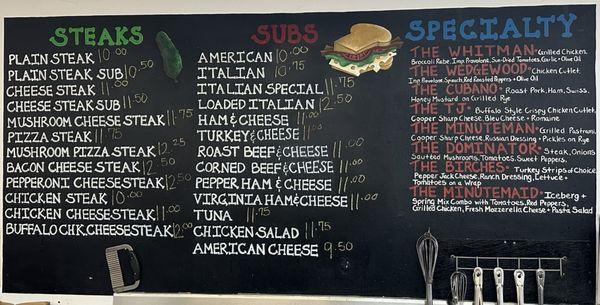 STEAKS
PLAIN STEAK 10.00
PLAIN STEAK SUB 10.50
CHEESE STEAK 11.00
CHEESE STEAK SUB 11.50
MUSHROOM CHEESE STEAK 11.75
PIZZA STEAK 11.75
MUSHROOM PIZZA STEAK 12.25
BACON CHEESE STEAK 12.50
PEPPERONI CHEESESTEAK 12.50
CHICKEN STEAK 10.00
CHICKEN CHEESESTEAK 11.00
BUFFALO CHK. CHEESESTEAK 12.00
SUBS
AMERICAN 10.00
ITALIAN 10.75
ITALIAN SPECIAL 11.75
LOADED ITALIAN 12.50
HAM & CHEESE 11.00
TURKEY & CHEESE 11.00
ROAST BEEF & CHEESE 11.00
CORNED BEEF & CHEESE 11.00
PEPPER HAM & CHEESE 11.00
VIRGINIA HAM & CHEESE 11.00
TUNA 11.75
CHICKEN SALAD 11.75
AMERICAN CHEESE 9.50
SPECIALTY
THE WHITMAN Grilled Chicken,
Broccoli Rabe, Imp. Provolone, Sun-Dried Tomatoes, Garlic + Olive Oil
THE WEDGEWOOD Chicken Cutlet,
Imp. Provolone, Spinach, Red Roasted Peppers + Olive Oil
THE CUBANO Roast Pork, Ham, Swiss,
Honey Mustard on Grilled Rye
THE TJ Buffalo Style Crispy Chicken Cutlet,
Cooper Sharp Cheese, Bleu Cheese + Romaine
THE MINUTEMAN Grilled Pastrami,
Cooper Sharp Cheese, Russian Dressing + Pickles on Rye
THE DOMINATOR Steak, Onions
Sautted Mushrooms, Tomatoes, Sweet Peppers,
THE BIRCHES Turkey Strips of Choice,
Pepper Jack Cheese, Ranch Dressing, Lettuce +
Tomatoes on a Wrap
THE MINUTEMAID Iceberg +
Spring Mix Combo with Tomatoes, Red Peppers,
Grilled Chicken, Fresh Mozzerella Cheese + Pasta Salad